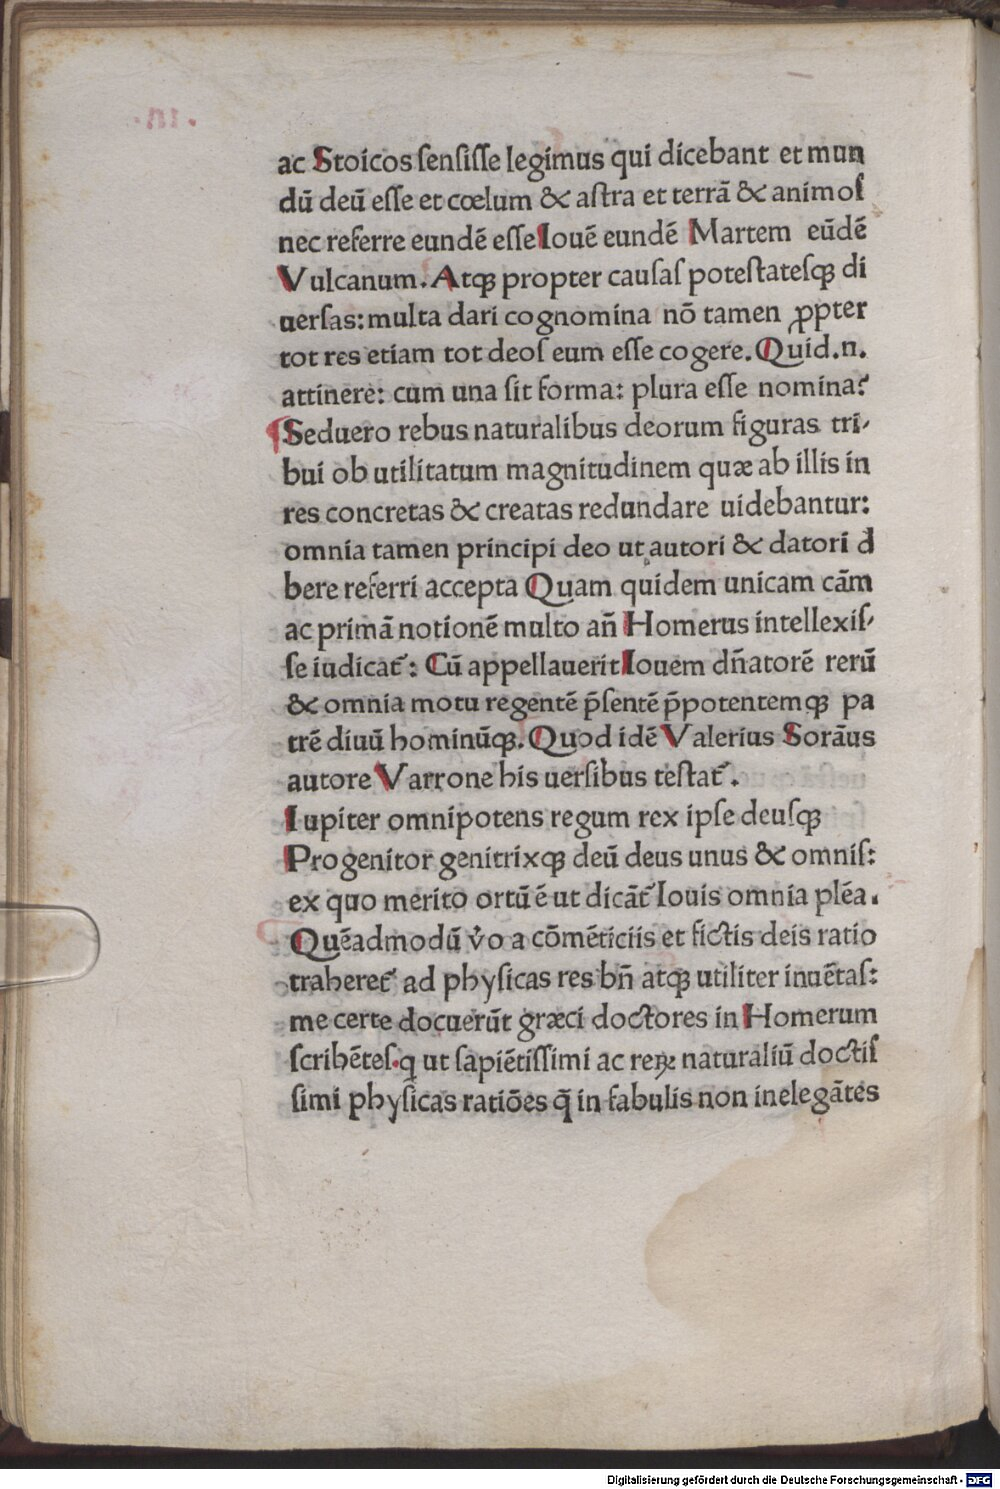 ac Stoicos ſenſiſſe legimus qui dicebant et mun
dū deū eſſe et cœlum & aſtra et terrā & animoſ
nec referre eundē eſſe Iouē eundē Martem eūdē
Vulcanum. Atqꝫ propter cauſaſ poteſtateſqꝫ di
uerſas: multa dari cognomina nō tamen ꝓpter
tot res etiam tot deoſ eum eſſe cogere. Quid .n.
attinere: cum una ſit forma: plura eſſe nomina?
¶Seduero rebus naturalibus deorum figuras tri-
bui ob utilitatum magnitudinem quæ ab illis in
res concretas & creatas redundare uidebantur:
omnia tamen principi deo ut autori & datori d
bere referri accepta Quam quidem unicam cām
ac primā notionē multo an̄ Homerus intellexiſ-
ſe iudicat᷑: Cū appellauerit Iouem dn̄atorē rerū
& omnia motu regentē p̄ſentē p̄potentemqꝫ pa
trē diuū hominūqꝫ. Quod idē Valerius Sorāus
autore Varrone his uerſibus teſtat᷑.
Iupiter omnipotens regum rex ipſe deuſqꝫ
Progenitor genitrixqꝫ deū deus unus & omniſ:
ex quo merito ortū ē ut dicāt᷑ Iouis omnia plēa.
Quēadmodū v̊o a cōmēticiis et fictis deis ratio
traheret᷑ ad phyſicas res bn̄ atqꝫ utiliter inuētaſ:
me certe docuerūt græci doctores in Homerum
ſcribēteſ.q ut ſapiētiſſimi ac reꝝ naturaliū doctiſ
ſimi phyſicas ratiōes q̄ in fabulis non inelegātes
Digitalisierung gefördert durch die Deutsche Forschungsgemeinschaft - DFG